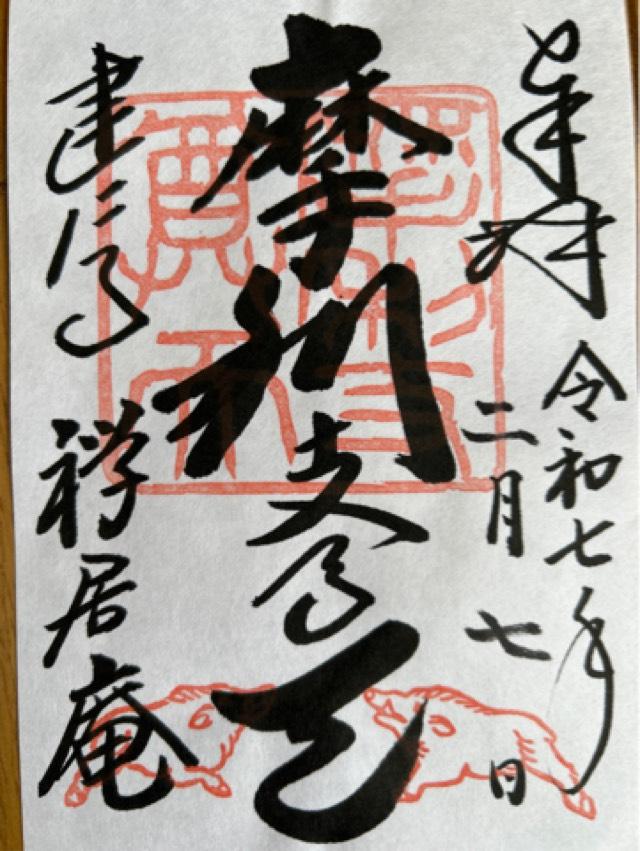 奉拝
令和七年
二月七日
摩利支尊天
建仁寺
禅居庵